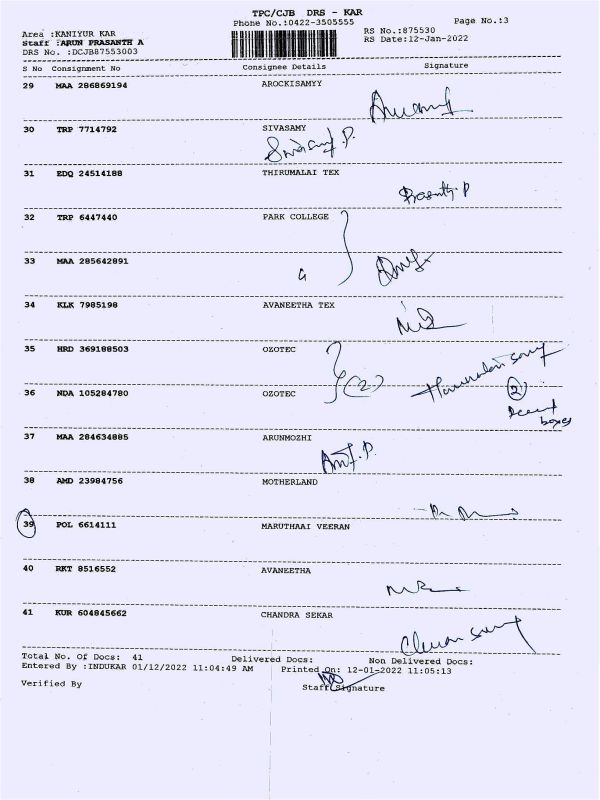 TPC/CJB DRS - KAR
Phone No.:0422-3505555
Page No.:3
Area :KANIYUR KAR
RS No.:875530
Staff :ARUN PRASANTH A
RS Date:12-Jan-2022
DRS No. :DCJB87553003
S No Consignment No Consignee Details Signature
29 MAA 286869194 AROCKISAMYY
30 TRP 7714792 SIVASAMY
Sivasamy.P.
31 EDQ 24514188 THIRUMALAI TEX
Prasanth.P
32 TRP 6447440 PARK COLLEGE
33 MAA 285642891
34 KLK 7985198 AVANEETHA TEX
35 HRD 369188503 OZOTEC
(2)
36 NDA 105284780 OZOTEC
2
boxes
37 MAA 284634885 ARUNMOZHI
38 AMD 23984756 MOTHERLAND
39 POL 6614111 MARUTHAAI VEERAN
40 RKT 8516552 AVANEETHA
41 KUR 604845662 CHANDRA SEKAR
Total No. Of Docs: 41 Delivered Docs: Non Delivered Docs:
Entered By :INDUKAR 01/12/2022 11:04:49 AM Printed On: 12-01-2022 11:05:13
Verified By Staff Signature